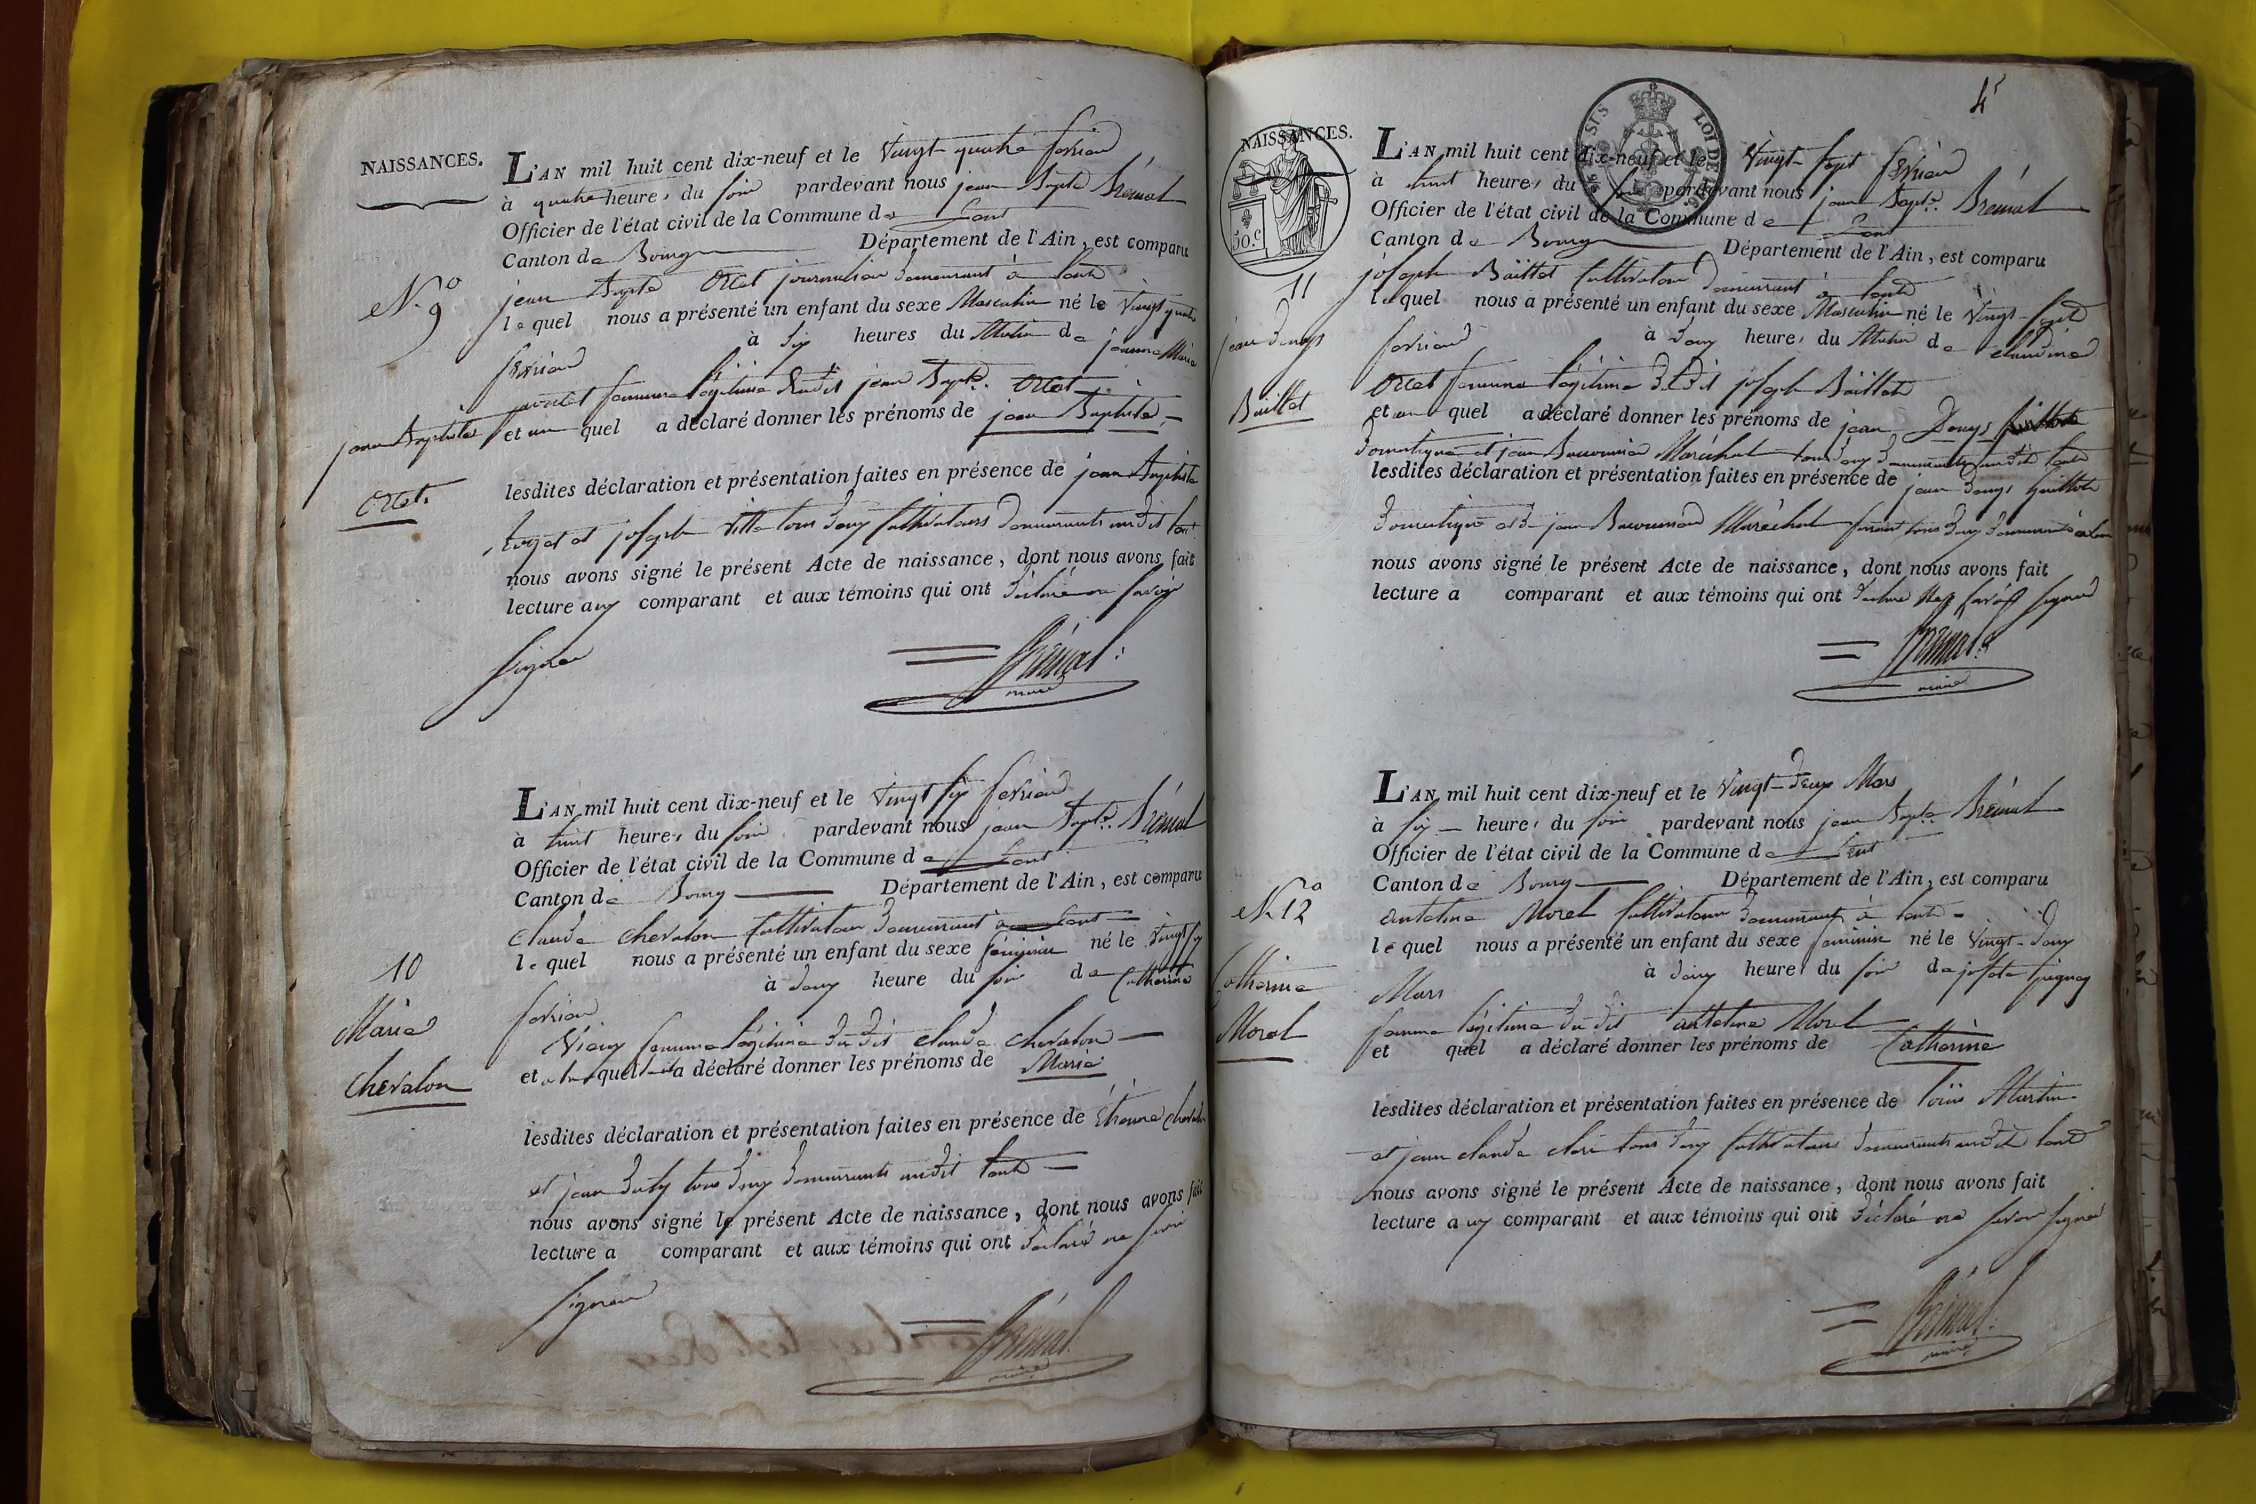 NAISSANCES.
L'AN mil huit cent dix-neuf et le Vingt quatre fevrier
à quatre heures du soir pardevant nous jean Bapte Brémal
Officier de l'état civil de la Commune de Lent
Canton de Bourg Département de l'Ain, est comparu
N.º 9
jean Bapte Ortet journalier demeurant à Lent
lequel nous a présenté un enfant du sexe Masculin né le Vingt quatre
fevrier à six heures du Matin de jeanne Marie
femme légitime dudit jean Bapte. Ortet
et au quel a déclaré donner les prénoms de jean Baptiste
jean Baptiste
Ortet.
lesdites déclaration et présentation faites en présence de jean Baptiste
et joseph tous deux Cultivateurs demeurants audit Lent
nous avons signé le présent Acte de naissance, dont nous avons fait
lecture aux comparant et aux témoins qui ont déclaré ne savoir
signer
Brémal.
maire
L'AN mil huit cent dix-neuf et le Vingt six fevrier
à huit heures du soir pardevant nous jean Bapte. Brémal
Officier de l'état civil de la Commune de Lent
Canton de Bourg Département de l'Ain, est comparu
Claude Chevalon Cultivateur demeurant à Lent
lequel nous a présenté un enfant du sexe féminin né le Vingt six
10
fevrier à deux heure du soir de Catherine
Maria
Vieux femme légitime du dit Claude Chevalon
et a la quelle a déclaré donner les prénoms de Maria
Chevalon
lesdites déclaration et présentation faites en présence de Etienne Chevalon
et jean tous deux demeurants audit Lent
nous avons signé le présent Acte de naissance, dont nous avons fait
lecture a comparant et aux témoins qui ont déclaré ne savoir
signer
Brémal.
maire
4
NAISSANCES.
SIS
LOI DE 1816
50.c
L'AN mil huit cent dix-neuf et le Vingt sept fevrier
à huit heures du soir pardevant nous jean Bapte. Brémal
Officier de l'état civil de la Commune de Lent
Canton de Bourg Département de l'Ain, est comparu
joseph Baillet Cultivateur demeurant à Lent
11
lequel nous a présenté un enfant du sexe Masculin né le Vingt sept
jean Denys
fevrier à deux heures du Matin de claudine
Ortet femme légitime du dit joseph Baillet
Baillet
et au quel a déclaré donner les prénoms de jean Denys
domestique et jean Maréchal tous deux demeurants audit Lent
lesdites déclaration et présentation faites en présence de jean Denys
domestique et de jean Maréchal ferrant tous deux demeurant à Lent
nous avons signé le présent Acte de naissance, dont nous avons fait
lecture a comparant et aux témoins qui ont déclaré signer
Brémal.
maire
L'AN mil huit cent dix-neuf et le Vingt-deux Mars
à six heures du soir pardevant nous jean Bapte Brémal
Officier de l'état civil de la Commune de Lent
Canton de Bourg Département de l'Ain, est comparu
N.º 12
Antelme Morel Cultivateur demeurant à Lent
lequel nous a présenté un enfant du sexe féminin né le Vingt-deux
Catherine
Mars à deux heures du soir de
Morel
femme légitime du dit antelme Morel
et quel a déclaré donner les prénoms de Catherine
lesdites déclaration et présentation faites en présence de Martin
et jean claude tous deux Cultivateurs demeurants audit Lent
nous avons signé le présent Acte de naissance, dont nous avons fait
lecture aux comparant et aux témoins qui ont déclaré ne savoir signer
Brémal.
maire